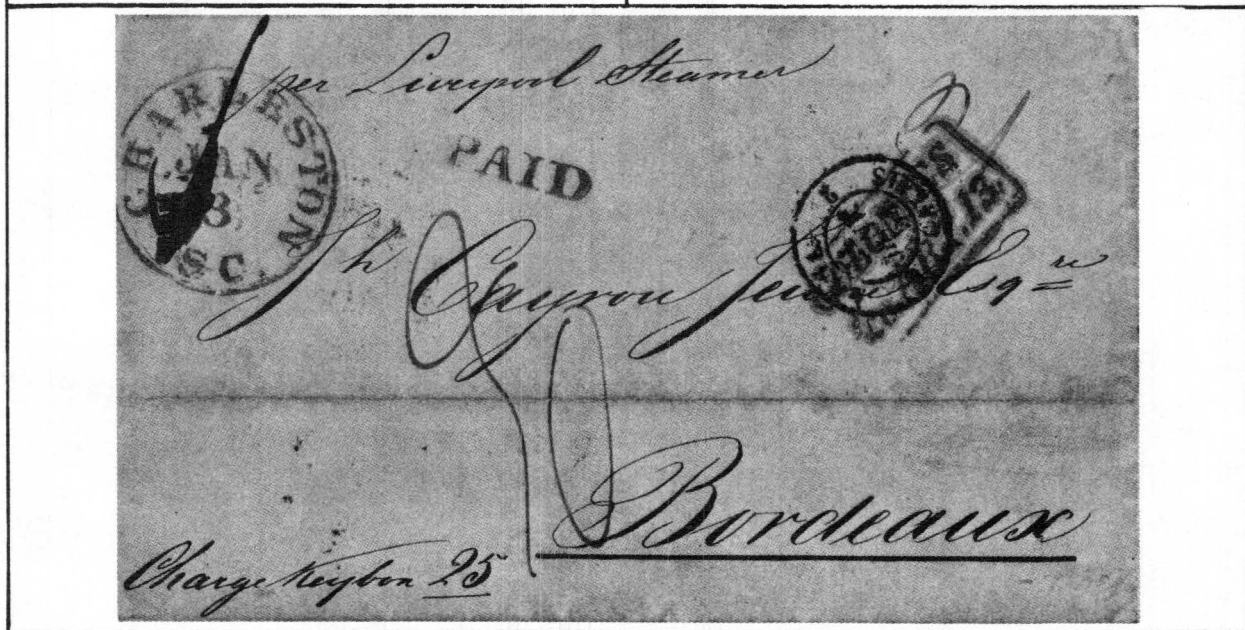 per Liverpool Steamer
CHARLESTON
JAN
S C.
PAID
Cayrou Esqre
Bordeaux
Charge Keybox 25